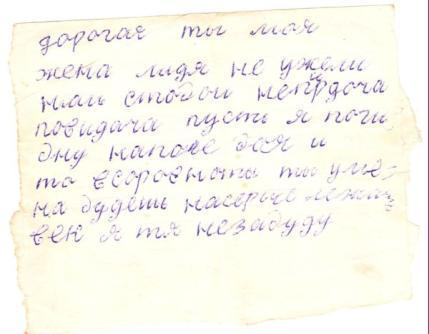 дорогае ты моя
жена лидя не ужели
нам стобои непрдоча
повидача пусть я поги
дну наполе боя и
то всоровноты ты уме
на будешь насерце лежать
век я тя незабуду